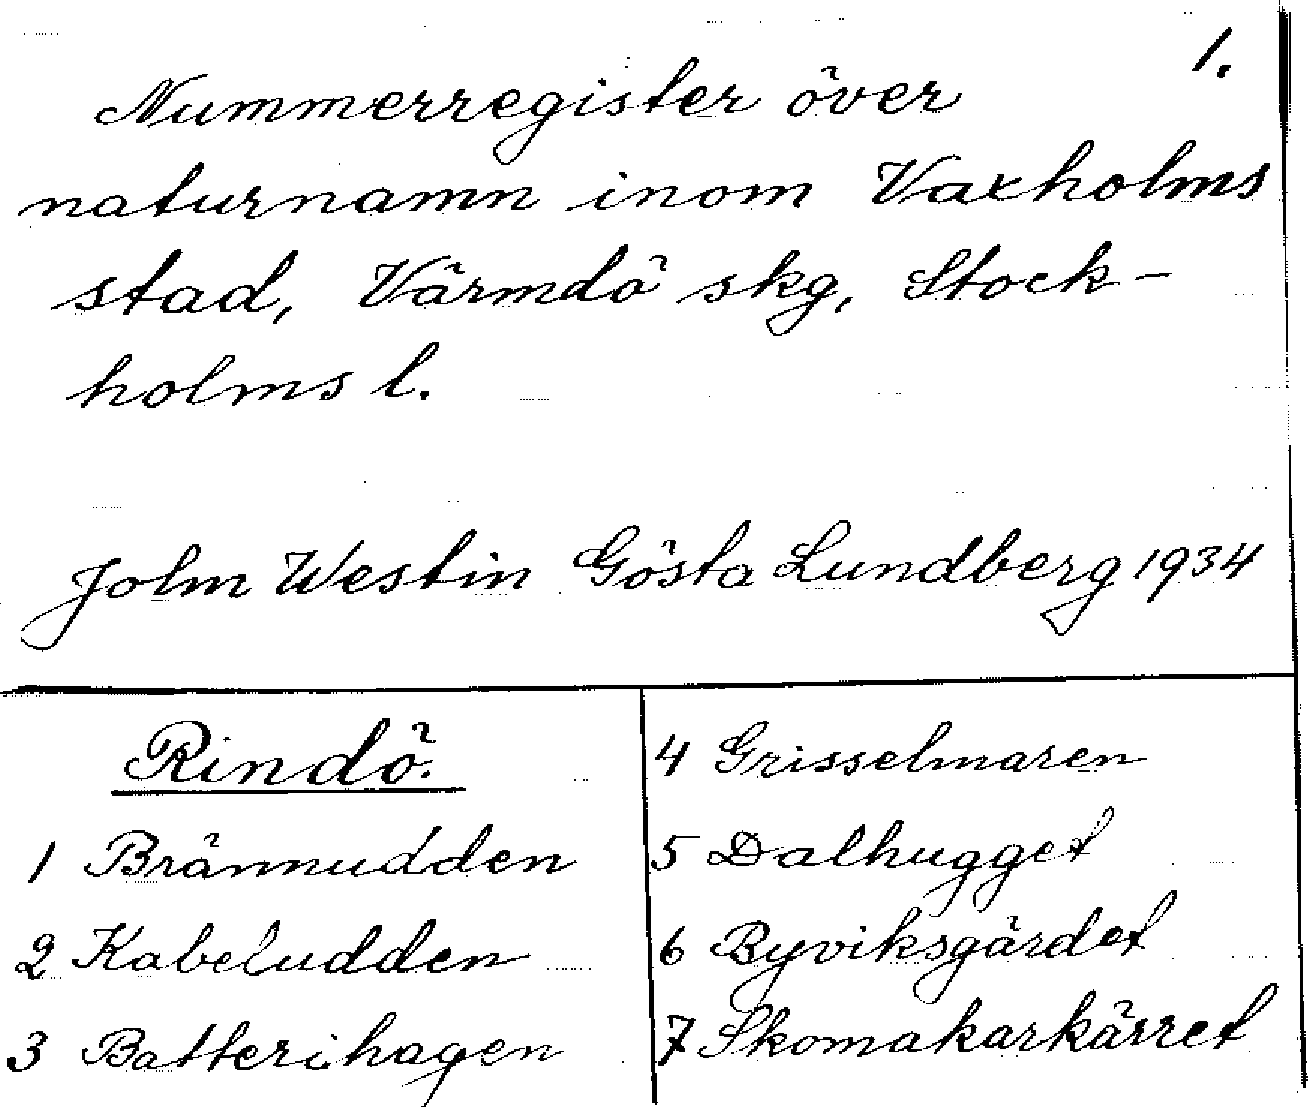 1.
Nummerregister över
naturnamn inom Vaxholms
stad, Värmdö skg, Stock-
holms l.
John Westin Gösta Lundberg 1934
Rindö.
1 Brännudden
2 Kabeludden
3 Batterihagen
4 Grisselmaren
5 Dalhugget
6 Byviksgärdet
7 Skomakarkärret